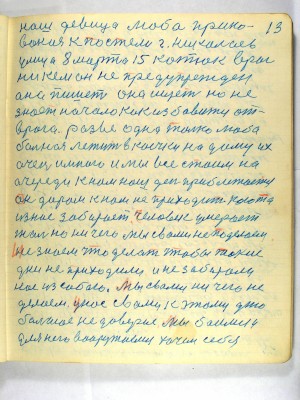 наш девица мова прико- 13
вокия к постели г. николаев
улица 8 марта 15 котюк враг
ни кем он не предупрежден
она пишет она ищет но не
знает начало как избавити от-
врага. разве одна только
больная лежит в койки на дому их
очен много и мы все стоим на
очереди к нам наш
он даром к нам не приходит кагота
из нас забирает. человик умерает
жал но ни чего мы с вами не поделаем
не знаем что делат чтобы такие
дни не приходили и не забарали
нас из собою. Мы с вами ни чего не
делаем. у нас с вами к этому дию
балшое не доверия. Мы боимся
для него вооружаемы хочем себя